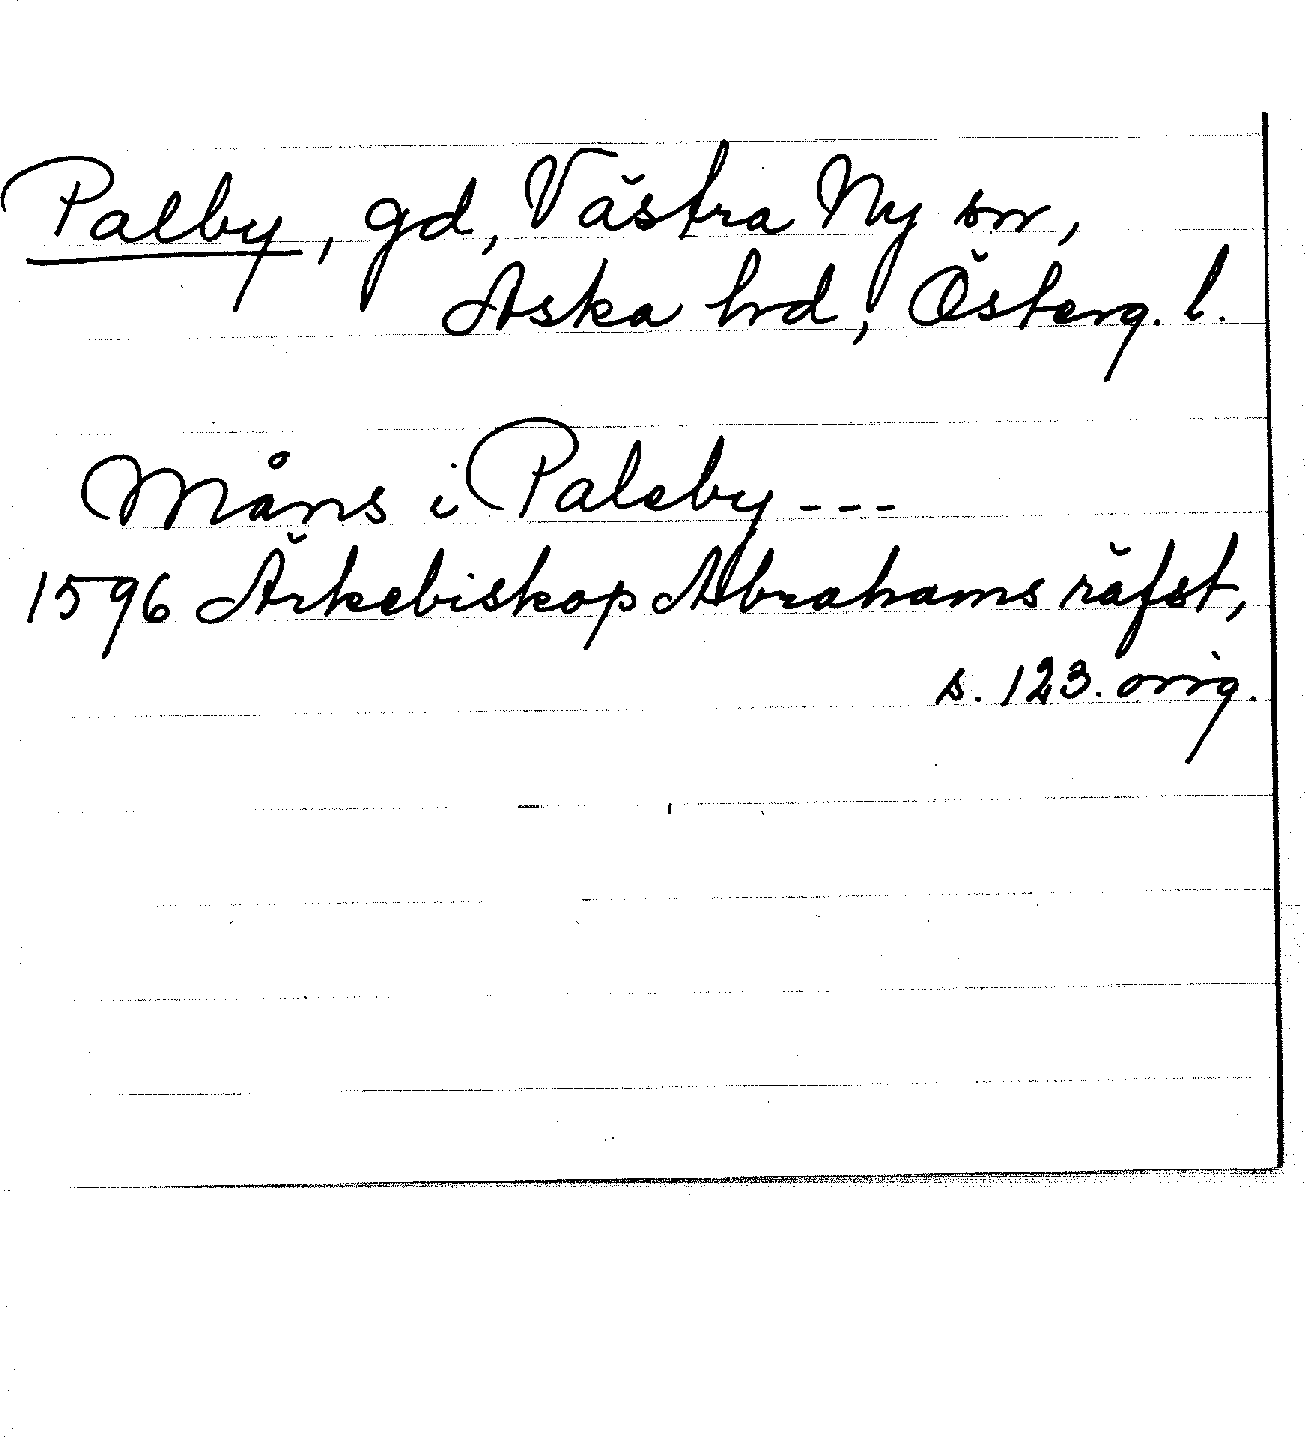 Palby, gd, Västra Ny sn,
Aska hd, Österg. l.
Måns i Paleby ---
1596 Ärkebiskop Abrahams räfst,
s. 123. orig.